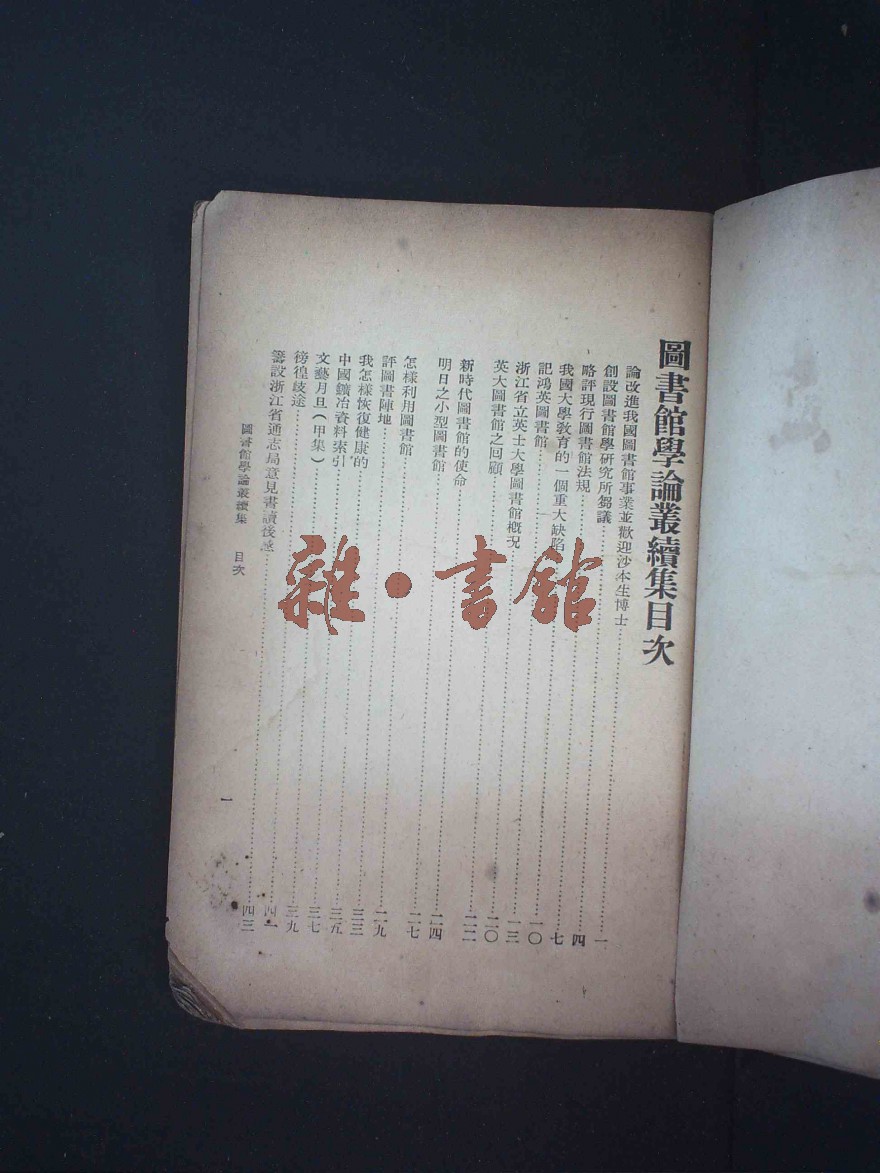 圖書館學論叢續集目次
論改進我國圖書館事業並歡迎沙本生博士……一
創設圖書館學研究所芻議……四
略評現行圖書館法規……七
我國大學教育的一個重大缺陷……一〇
記鴻英圖書館……一三
浙江省立英士大學圖書館概況……二〇
英大圖書館之回顧……二二
新時代圖書館的使命……二四
明日之小型圖書館……二七
怎樣利用圖書館……二九
評圖書陣地……三三
我怎樣恢復健康的……三五
中國鑛冶資料索引……三七
文藝月旦（甲集）……三九
徬徨歧途……四一
籌設浙江省通志局意見書讀後感……四三
圖書館學論叢續集 目次
一
雜·書館